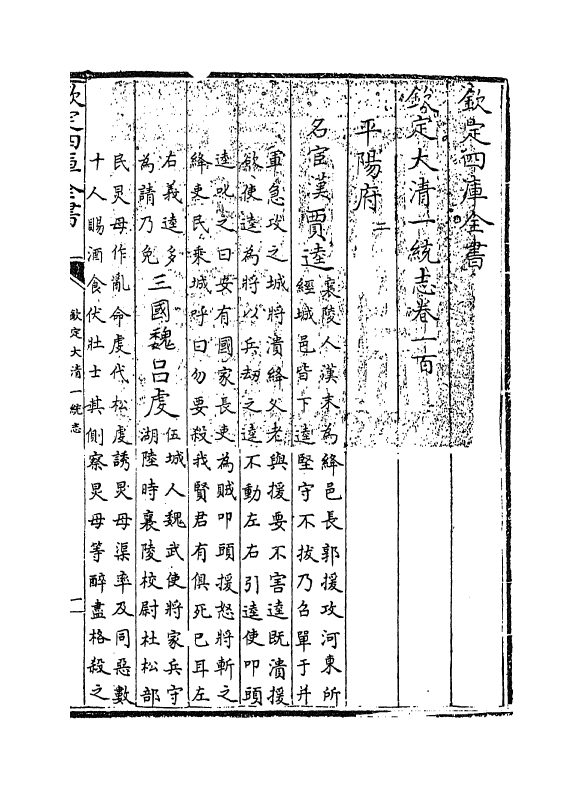 欽定四庫全書
欽定大清一統志卷一百一
平陽府二
名宦漢賈逵襄陵人漢末為絳邑長郭援攻河東所
經城邑皆下逵堅守不拔乃召單于并
軍急攻之城將潰絳父老與援要不害逵既潰援
欲使逵為將以兵劫之逵不動左右引逵使叩頭
逵叱之曰安有國家長吏為賊叩頭援怒將斬之
絳吏民乘城呼曰勿要殺我賢君有俱死已耳左
右義逵多
為請乃免三國魏呂虔伍城人魏武使將家兵守
湖陸時襄陵校尉杜松部
民炅母作亂命虔代松虔誘炅母渠率及同惡數
十人賜酒食伏壯士其側察炅母等醉盡格殺之
欽定四庫全書
欽定大清一統志
一